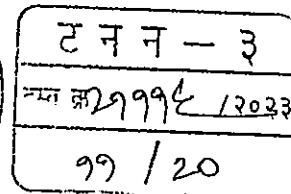 ट न न - ३
दस्त क्र २७११९८ /२०२३
११ / २०